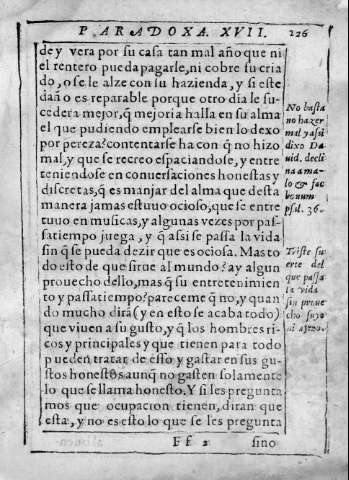 PARADOXA. XVII. 226
de y vera por su casa tan mal año que ni
el rentero pueda pagarle, ni cobre su cria
do, o se le alze con su hazienda, y si este
daño es reparable porque otro dia le su-
cedera mejor, q̃ mejoria halla en su alma
el que pudiendo emplearse bien lo dexo
por pereza? contentarse ha con q̃ no hizo
mal, y que se recreo espaciandose, y entre
teniendose en conuersaciones honestas y
discretas, q̃ es manjar del alma que desta
manera jamas estuuo ocioso, que se entre
tuuo en musicas, y algunas vezes por pas-
satiempo juega, y q̃ assi se passa la vida
sin q̃ se pueda dezir que es ociosa. Mas to
do esto de que sirue al mundo? ay algun
prouecho dello, mas q̃ su entretenimien
to y passatiempo? pareceme q̃ no, y quan
do mucho dira (y en esto se acaba todo)
que viuen a su gusto, y q̃ los hombres ri-
cos y principales y que tienen para todo
pueden tratar de esso y gastar en sus gu-
stos honestos, aunq̃ no gasten solamente
lo que se llama honesto. Y si les pregunta
mos que ocupacion tienen, diran que
esta, y no es esto lo que se les pregunta
Ff 2 sino
No basta
no hazer
mal y assi
dixo Da
uid. decli
na a ma-
lo & fac
bonum
psal. 36.
Triste su
erte del
que passa
la vida
sin proue
cho suyo
ni ageno.